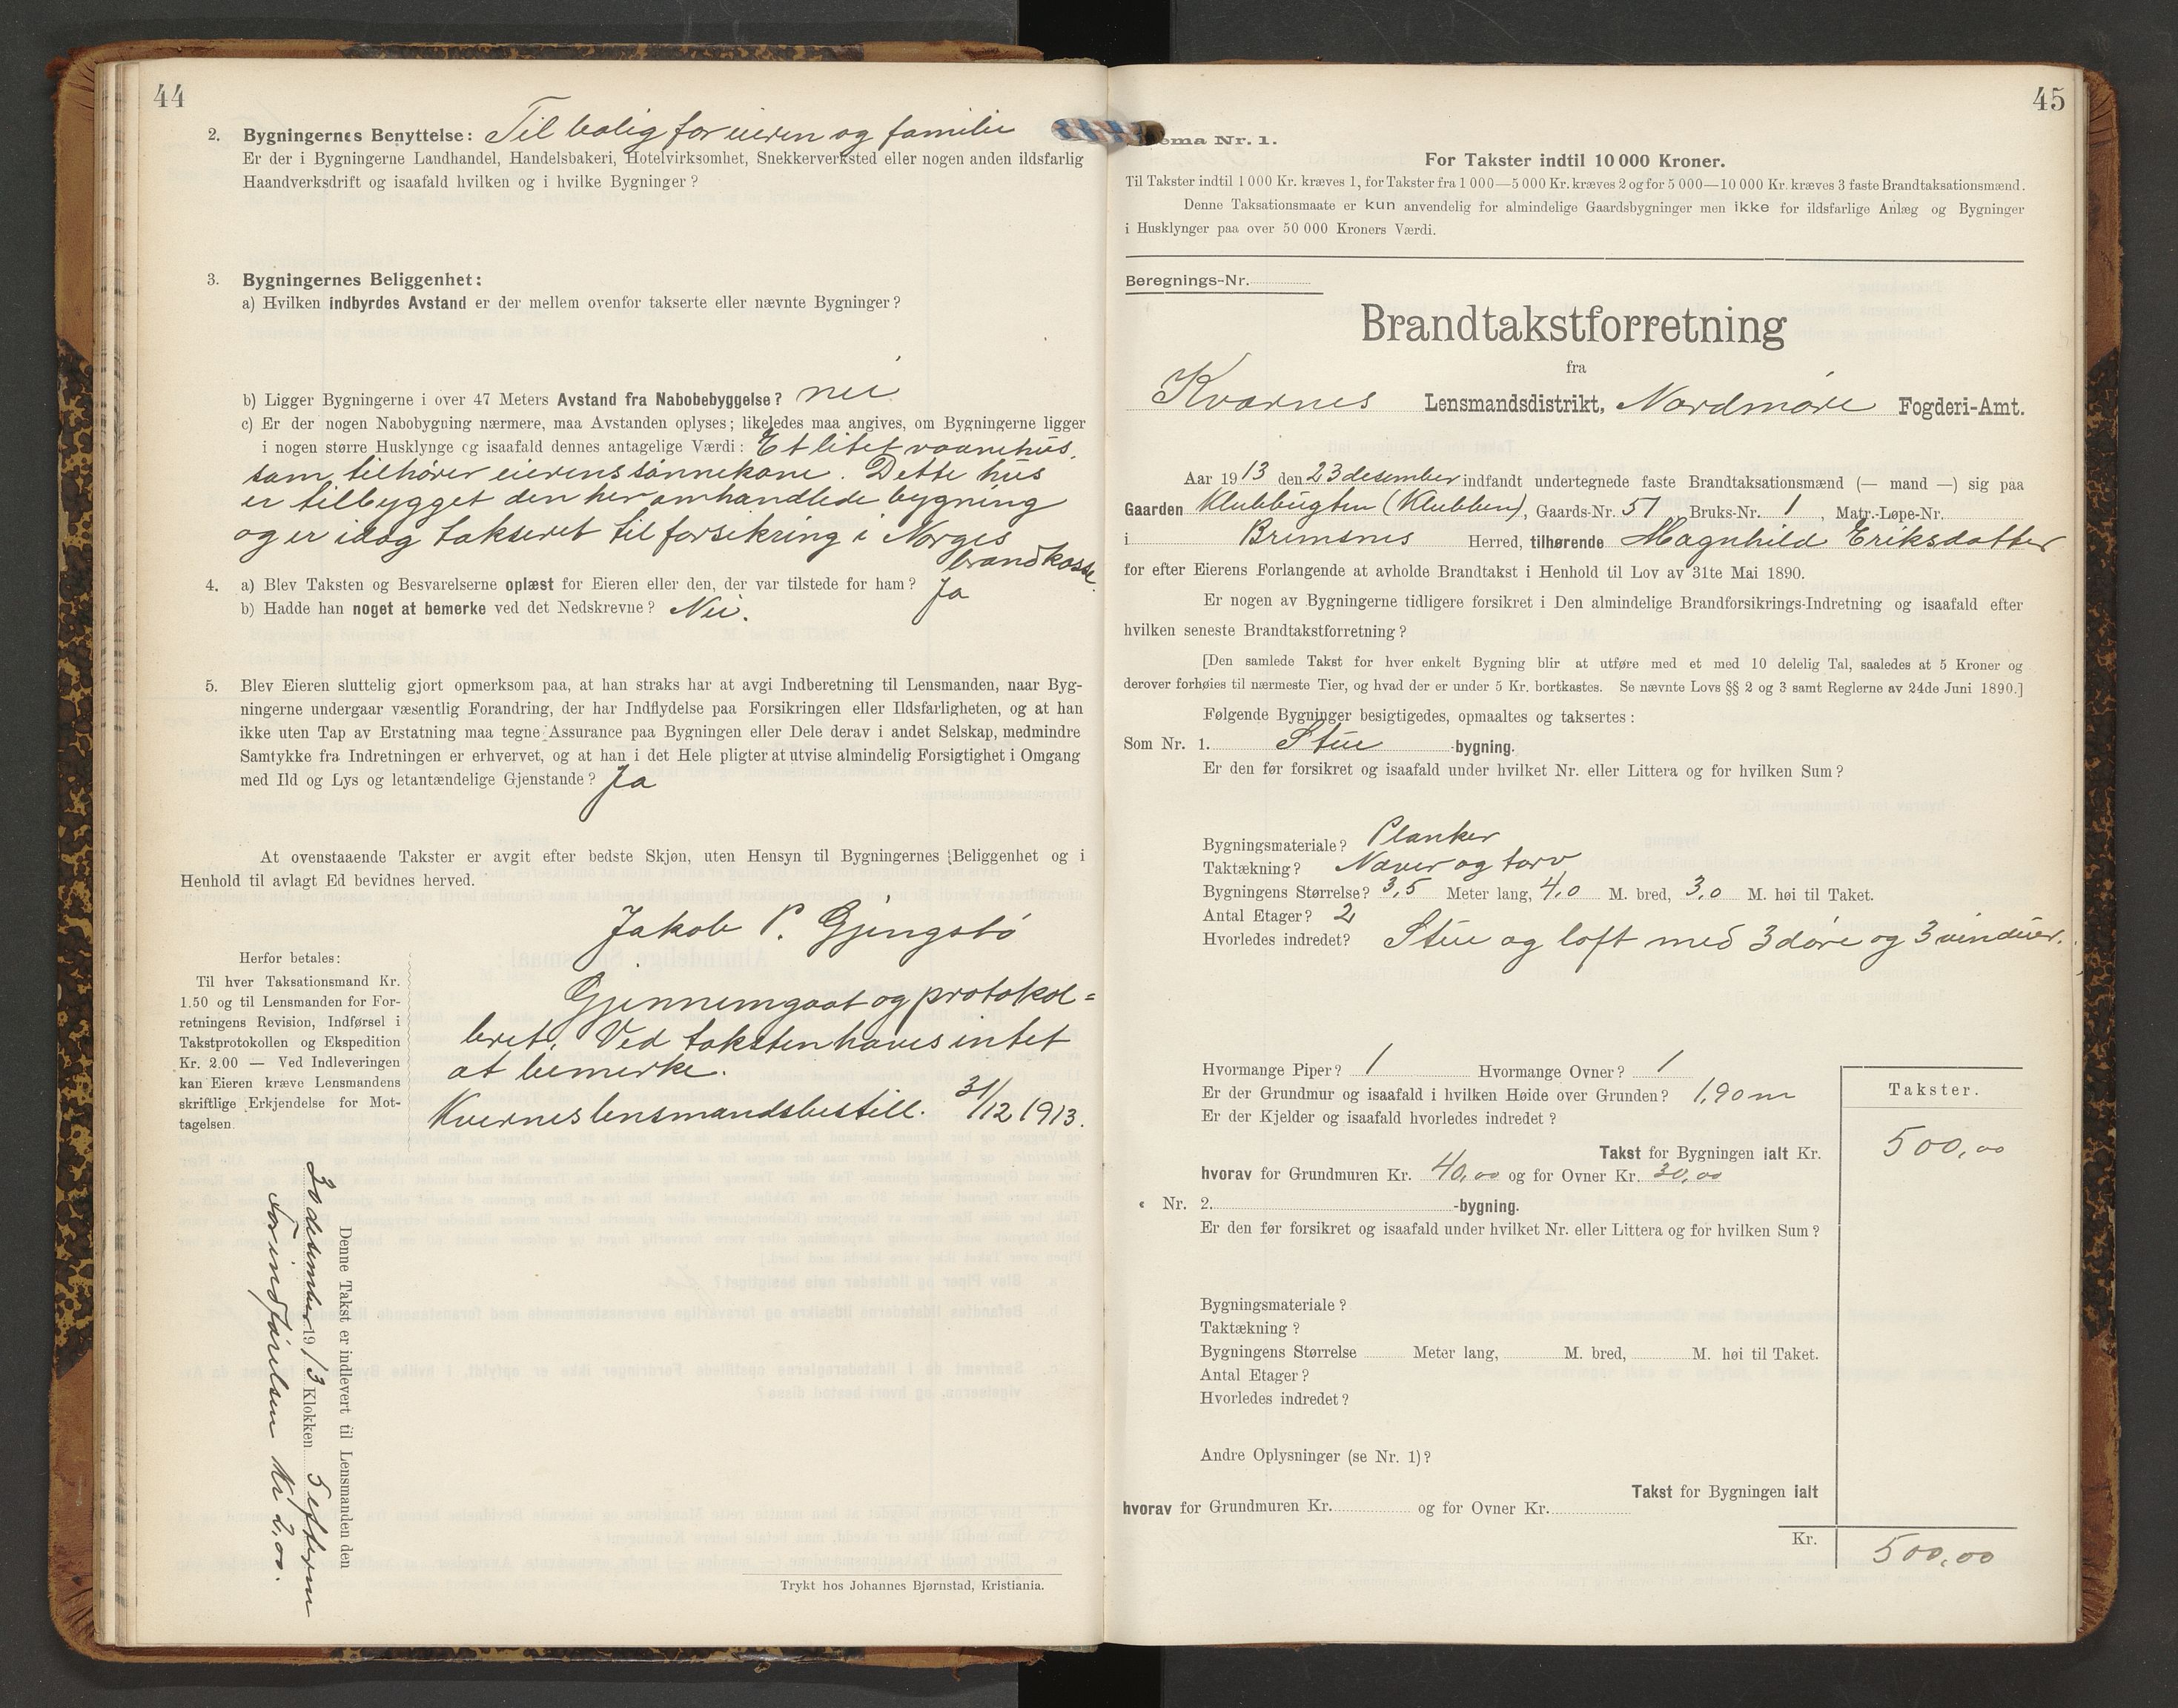 44
2. Bygningernes Benyttelse: Til bolig for eieren og familie
Er der i Bygningerne Laudhandel, Handelsbakeri, Hotelvirksomhet, Snekkerverksted eller nogen anden ildsfarlig
Haandverksdrift og isaafald hvilken og i hvilke Bygninger?
3. Bygningernes Beliggenhet:
a) Hvilken indbyrdes Avstand er der mellem ovenfor takserte eller nævnte Bygninger?
b) Ligger Bygningerne i over 47 Meters Avstand fra Nabobebyggelse? nei
c) Er der nogen Nabobygning nærmere, maa Avstanden oplyses; likeledes maa angives, om Bygningerne ligger
i nogen større Husklynge og isaafald dennes antagelige Værdi: Et litet vaanehus,
som tilhører eierens sønnekone. Dette hus
er tilbygget den her omhandlede bygning
og er idag takseret til forsikring i Norges
brandkasse.
4. a) Blev Taksten og Besvarelserne oplæst for Eieren eller den, der var tilstede for ham? Ja
b) Hadde han noget at bemerke ved det Nedskrevne? Nei.
5. Blev Eieren sluttelig gjort opmerksom paa, at han straks har at avgi Indberetning til Lensmanden, naar Byg-
ningerne undergaar væsentlig Forandring, der har Indflydelse paa Forsikringen eller Ildsfarligheten, og at han
ikke uten Tap av Erstatning maa tegne Assurance paa Bygningen eller Dele derav i andet Selskap, medmindre
Samtykke fra Indretningen er erhvervet, og at han i det Hele pligter at utvise almindelig Forsigtighet i Omgang
med Ild og Lys og letantændelige Gjenstande? Ja
At ovenstaaende Takster er avgit efter bedste Skjøn, uten Hensyn til Bygningernes Beliggenhet og i
Henhold til avlagt Ed bevidnes herved.
Jakob P. Gjengstø
Herfor betales:
Til hver Taksationsmand Kr.
1.50 og til Lensmanden for For-
retningens Revision, Indførsel i
Takstprotokollen og Ekspedition
Kr. 2.00 — Ved Indleveringen
kan Eieren kræve Lensmandens
skriftlige Erkjendelse for Mot-
tagelsen.
Gjennemgaat og protokol=
leret. Ved taksten haves intet
at bemerke.
Kvernes lensmandsbestill. 31/12 1913.
Denne Takst er indlevert til Lensmanden den
30 desember 1913 Klokken 5 efterm
For indførelsen Kr 2,00.
Trykt hos Johannes Bjørnstad, Kristiania.
45
ema Nr. 1.
For Takster indtil 10 000 Kroner.
Til Takster indtil 1 000 Kr. kræves 1, for Takster fra 1 000—5 000 Kr. kræves 2 og for 5 000—10 000 Kr. kræves 3 faste Brandtaksationsmænd.
Denne Taksationsmaate er kun anvendelig for almindelige Gaardsbygninger men ikke for ildsfarlige Anlæg og Bygninger
i Husklynger paa over 50 000 Kroners Værdi.
Beregnings-Nr.
Brandtakstforretning
fra
Kvernes Lensmandsdistrikt, Nordmøre Fogderi-Amt.
Aar 1913 den 23 desember indfandt undertegnede faste Brandtaksationsmænd (— mand —) sig paa
Gaarden Klubbugten (Klubben), Gaards-Nr. 57 Bruks-Nr. 1, Matr.-Løpe-Nr.
i Bremsnes Herred, tilhørende Magnhild Eriksdatter
for efter Eierens Forlangende at avholde Brandtakst i Henhold til Lov av 31te Mai 1890.
Er nogen av Bygningerne tidligere forsikret i Den almindelige Brandforsikrings-Indretning og isaafald efter
hvilken seneste Brandtakstforretning?
[Den samlede Takst for hver enkelt Bygning blir at utføre med et med 10 delelig Tal, saaledes at 5 Kroner og
derover forhøies til nærmeste Tier, og hvad der er under 5 Kr. bortkastes. Se nævnte Lovs §§ 2 og 3 samt Reglerne av 24de Juni 1890.]
Følgende Bygninger besigtigedes, opmaaltes og taksertes:
Som Nr. 1. Stue -bygning.
Er den før forsikret og isaafald under hvilket Nr. eller Littera og for hvilken Sum?
Bygningsmateriale? Planker
Taktækning? Næver og torv
Bygningens Størrelse? 3,5 Meter lang, 4,0 M. bred, 3,0 M. høi til Taket.
Antal Etager? 2
Hvorledes indredet? Stue og loft med 3 døre og 3 vinduer.
Hvormange Piper? 1 Hvormange Ovner? 1
Er der Grundmur og isaafald i hvilken Høide over Grunden? 1,90 m
Er der Kjelder og isaafald hvorledes indredet?
Takster.
Takst for Bygningen ialt Kr. 500,00
hvorav for Grundmuren Kr. 40,00 og for Ovner Kr. 30,00
« Nr. 2. -bygning.
Er den før forsikret og isaafald under hvilket Nr. eller Littera og for hvilken Sum?
Bygningsmateriale?
Taktækning?
Bygningens Størrelse Meter lang, M. bred, M. høi til Taket.
Antal Etager?
Hvorledes indredet?
Andre Oplysninger (se Nr. 1)?
Takst for Bygningen ialt
hvorav for Grundmuren Kr. og for Ovner Kr.
Kr. 500,00